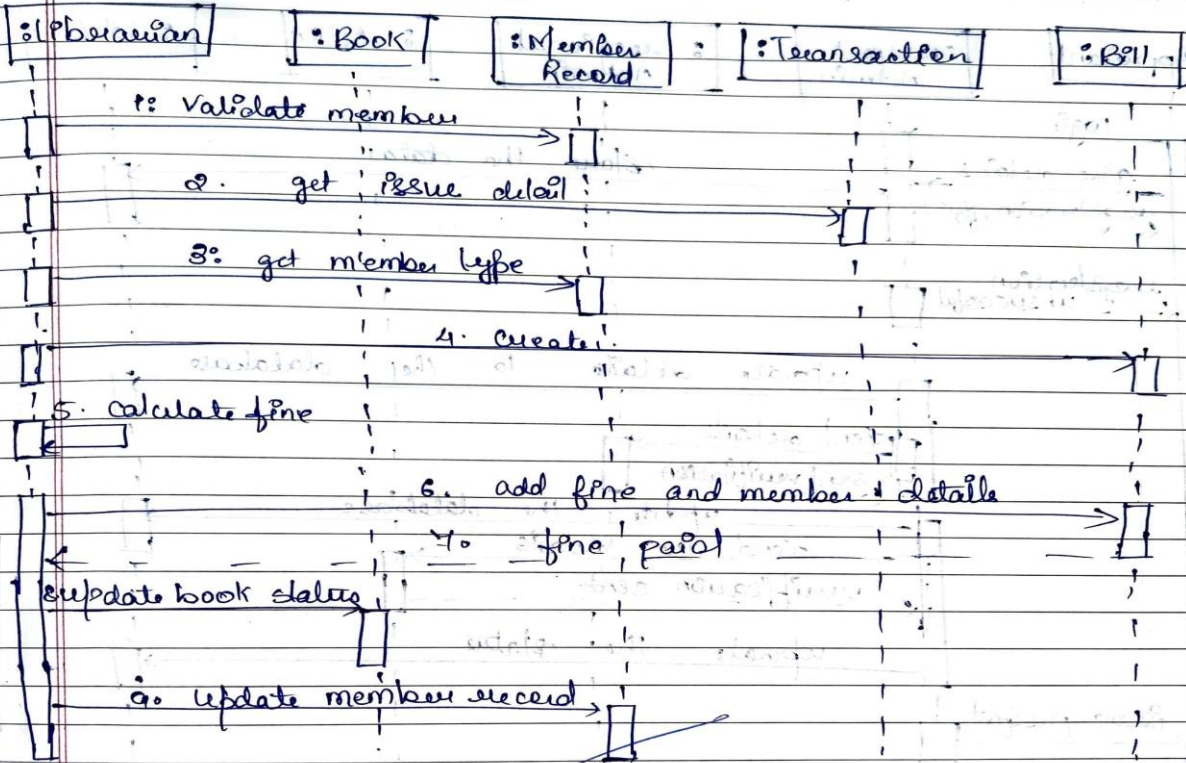 :Librarian :Book :Member : :Transaction :Bill
Record
1: Validate member
2. get issue detail
3: get member type
4. create
5. calculate fine
6. add fine and member details
7. fine paid
8 update book status
9. update member record